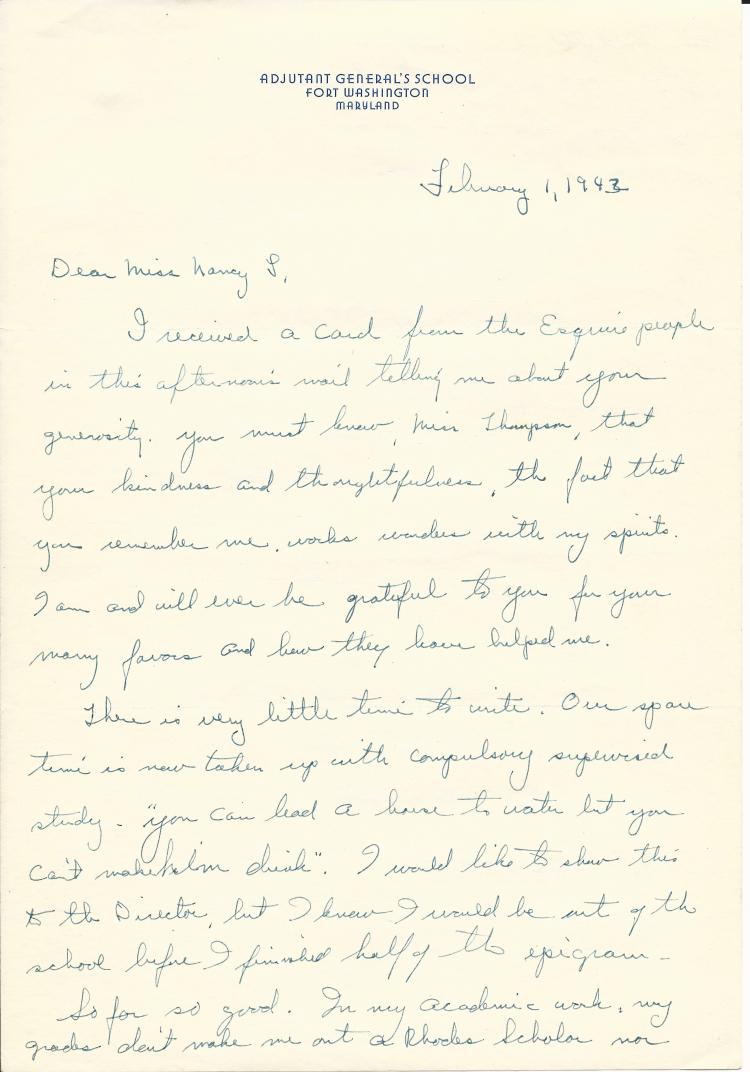 ADJUTANT GENERAL'S SCHOOL
FORT WASHINGTON
MARYLAND
February 1, 1943
Dear Miss Nancy S,
I received a card from the Esquire people
in this afternoon's mail telling me about your
generosity. You must know, Miss Thompson, that
your kindness and thoughtfulness, the fact that
you remember me, works wonders with my spirits.
I am and will ever be grateful to you for your
many favors and how they have helped me.
There is very little time to write. Our spare
time is now taken up with compulsory supervised
study - "you can lead a horse to water but you
can't make him drink". I would like to show this
to the Director, but I know I would be out of the
school before I finished half of the epigram -
So far so good. In my academic work, my
grades don't make me out a Rhodes Scholar nor